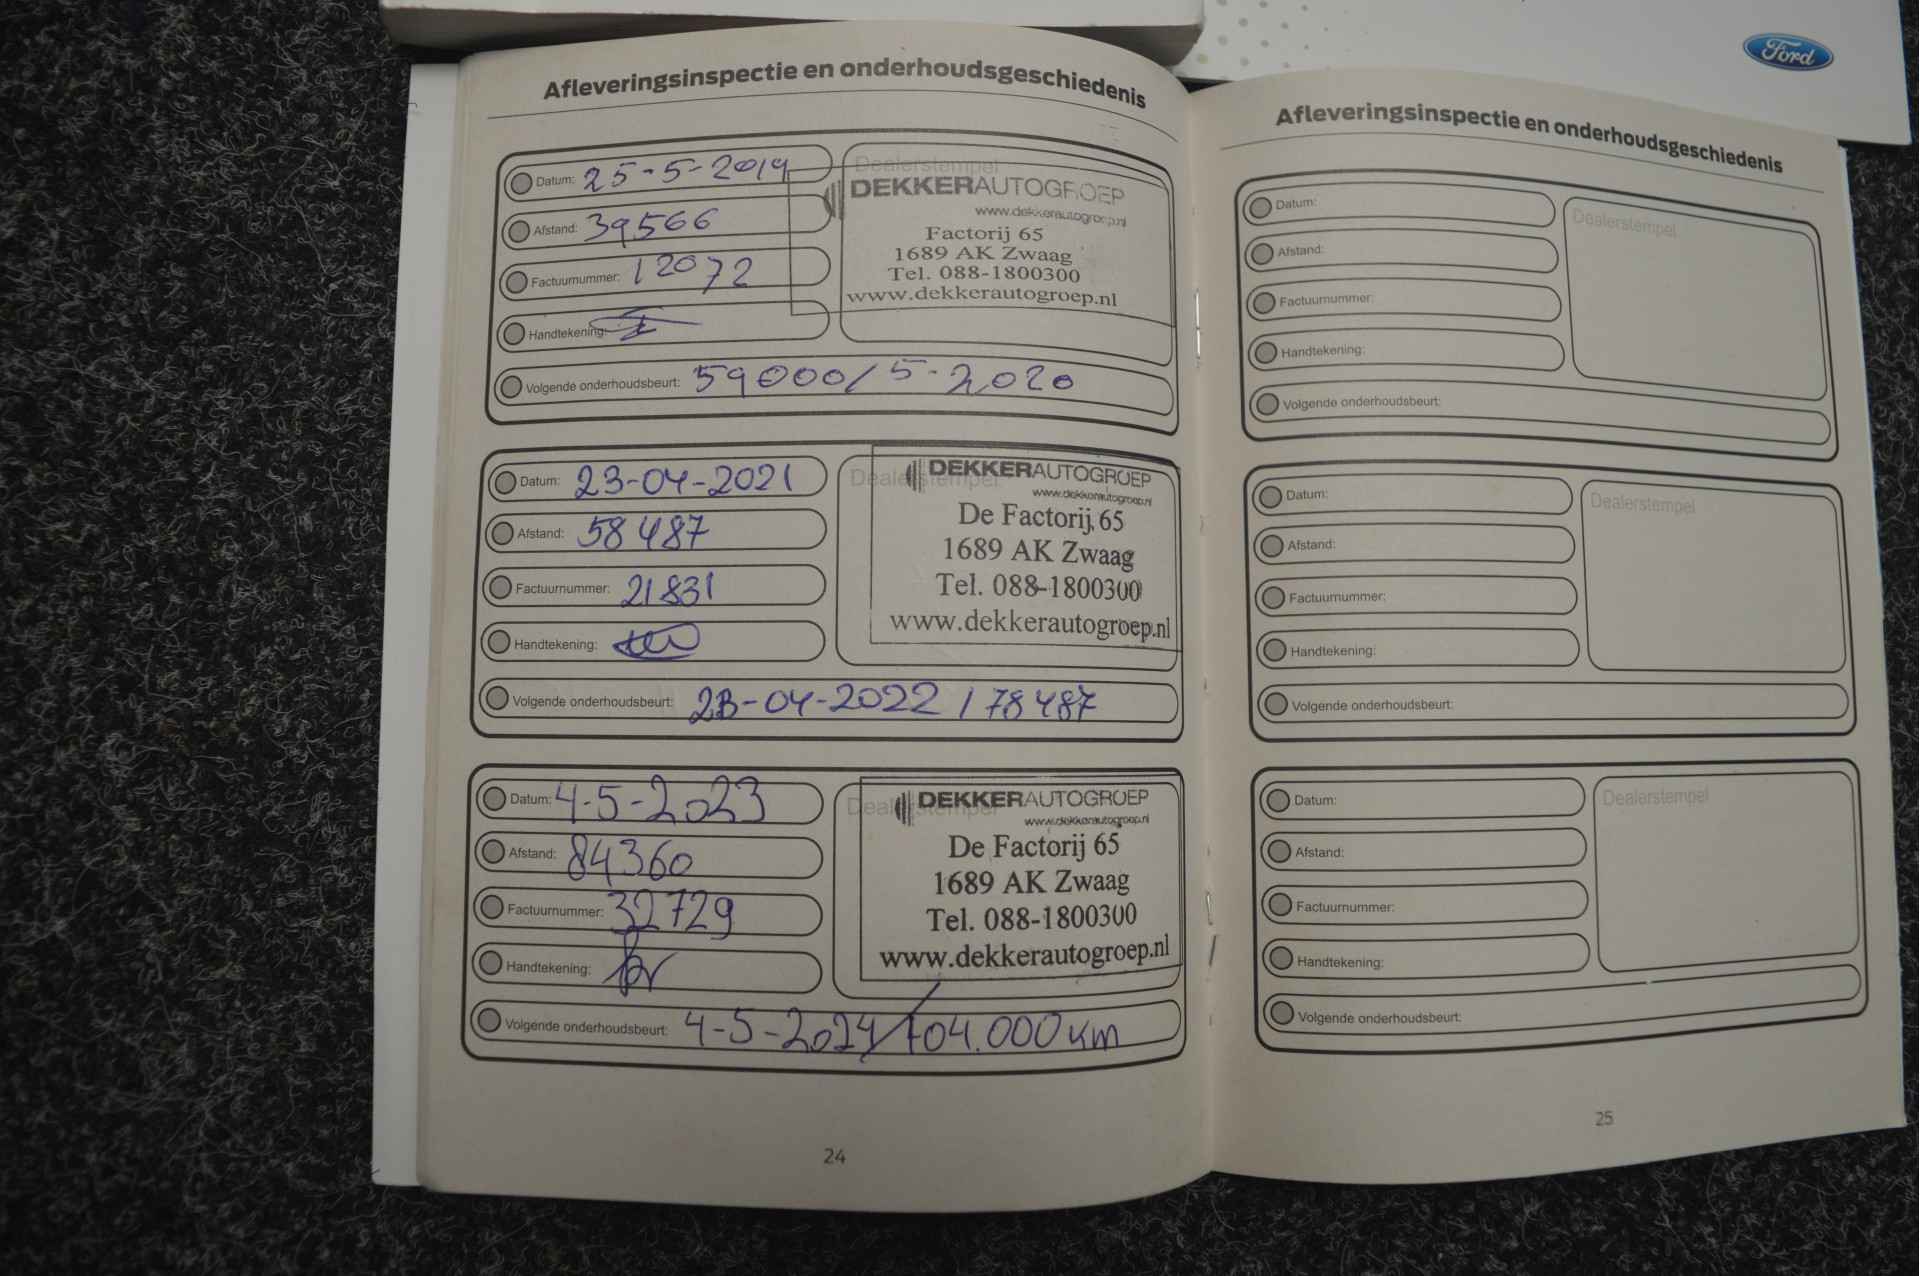 Ford
Afleveringsinspectie en onderhoudsgeschiedenis
Datum: 25-5-2019
Afstand: 39566
Factuurnummer: 12072
Handtekening:
Volgende onderhoudsbeurt: 59000/5-2020
Dealerstempel
DEKKERAUTOGROEP
www.dekkerautogroep.nl
Factorij 65
1689 AK Zwaag
Tel. 088-1800300
www.dekkerautogroep.nl
Datum: 23-04-2021
Afstand: 58487
Factuurnummer: 21831
Handtekening:
Volgende onderhoudsbeurt: 23-04-2022 / 78487
Dealerstempel
DEKKERAUTOGROEP
www.dekkerautogroep.nl
De Factorij 65
1689 AK Zwaag
Tel. 088-1800300
www.dekkerautogroep.nl
Datum: 4-5-2023
Afstand: 84360
Factuurnummer: 32729
Handtekening:
Volgende onderhoudsbeurt: 4-5-2024/104.000 km
Dealerstempel
DEKKERAUTOGROEP
www.dekkerautogroep.nl
De Factorij 65
1689 AK Zwaag
Tel. 088-1800300
www.dekkerautogroep.nl
24
Afleveringsinspectie en onderhoudsgeschiedenis
Datum:
Afstand:
Factuurnummer:
Handtekening:
Volgende onderhoudsbeurt:
Dealerstempel
Datum:
Afstand:
Factuurnummer:
Handtekening:
Volgende onderhoudsbeurt:
Dealerstempel
Datum:
Afstand:
Factuurnummer:
Handtekening:
Volgende onderhoudsbeurt:
Dealerstempel
25